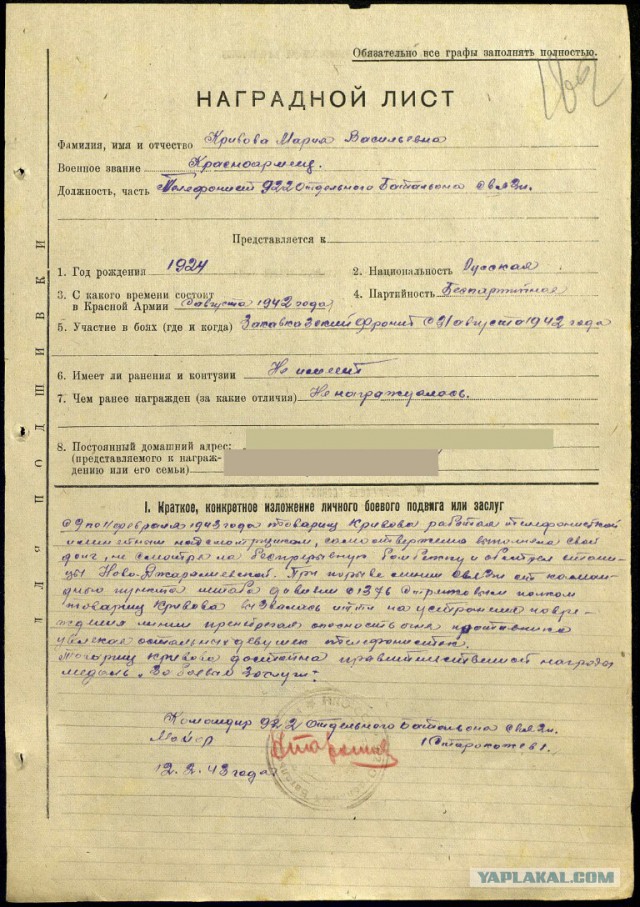 Обязательно все графы заполнять полностью.
НАГРАДНОЙ ЛИСТ
Фамилия, имя и отчество Кривова Мария Васильевна
Военное звание Красноармеец.
Должность, часть Телефонист 922 Отдельного Батальона связи.
Представляется к
1. Год рождения 1924
2. Национальность Русская
3. С какого времени состоит
в Красной Армии с августа 1942 года
4. Партийность Беспартийная
5. Участие в боях (где и когда) Закавказский фронт с 21 августа 1942 года
6. Имеет ли ранения и контузии Не имеет
7. Чем ранее награжден (за какие отличия) Не награждалась.
8. Постоянный домашний адрес:
(представляемого к награж-
дению или его семьи)
ДЛЯ ПОДШИВКИ
I. Краткое, конкретное изложение личного боевого подвига или заслуг
февраля 1943 года товарищ Кривова работая телефонисткой
и линейным надсмотрщиком, самоотверженно выполняла свой
долг, не смотря на беспрерывную бомбежку и обстрел станицы
Ново-Джарелиевской. При порыве линии связи от команд-
ного пункта штаба дивизии с 1376 стрелковым полком
товарищ Кривова вызвалась итти на устранение повре-
ждения линии
остальных девушек телефонисток.
Товарищ Кривова достойна правительственной награды
медаль "За боевые заслуги".
Командир 922 отдельного батальона связи.
Майор
12.2.43 года
YAPLAKAL.COM